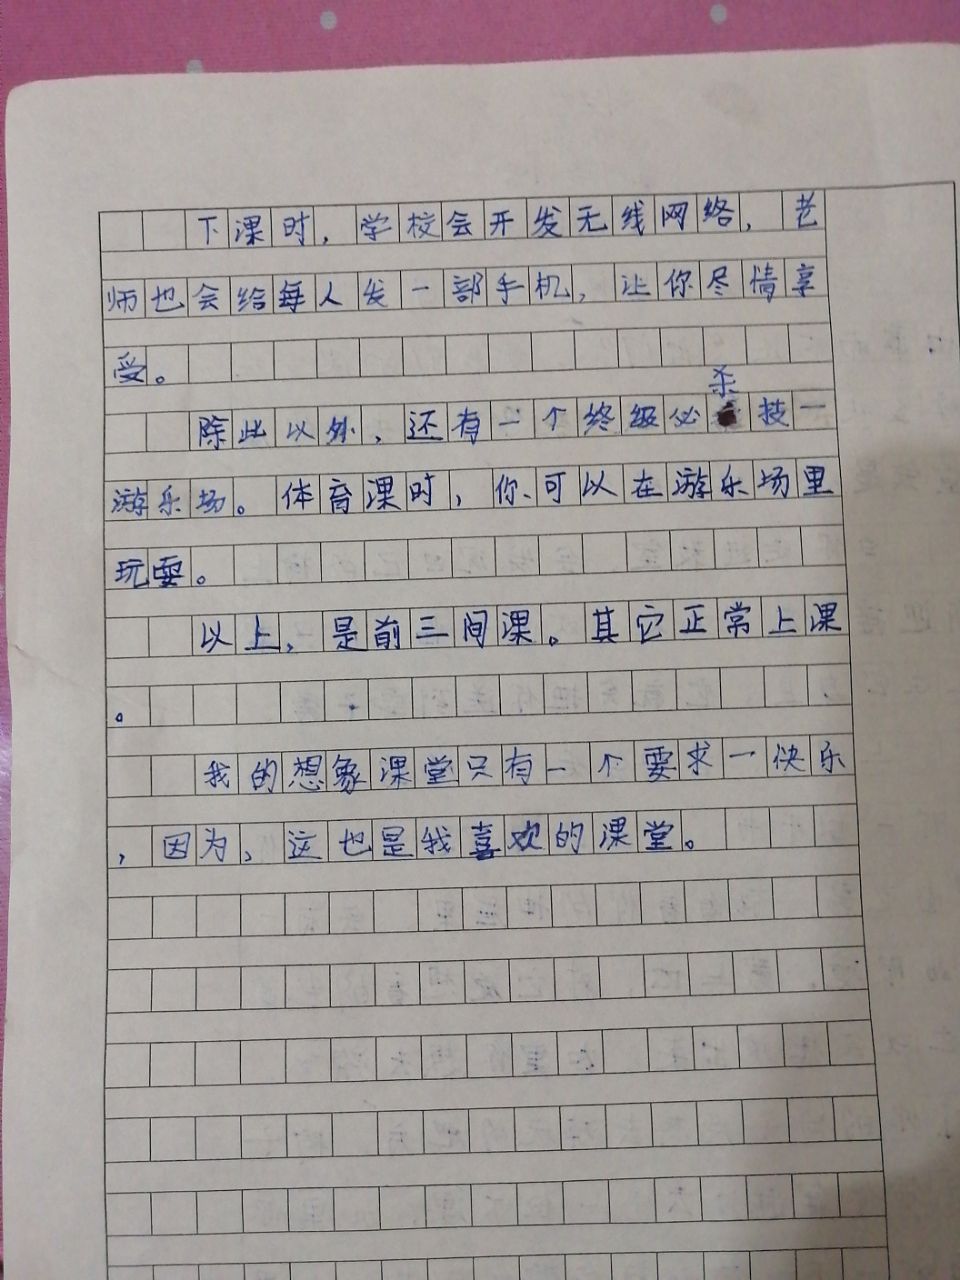 下课时，学校会开发无线网络，老
师也会给每人发一部手机，让你尽情享
受。
除此以外，还有一个终级必杀技一
游乐场。体育课时，你可以在游乐场里
玩耍。
以上，是前三间课。其它正常上课
。
我的想象课堂只有一个要求一快乐
，因为，这也是我喜欢的课堂。